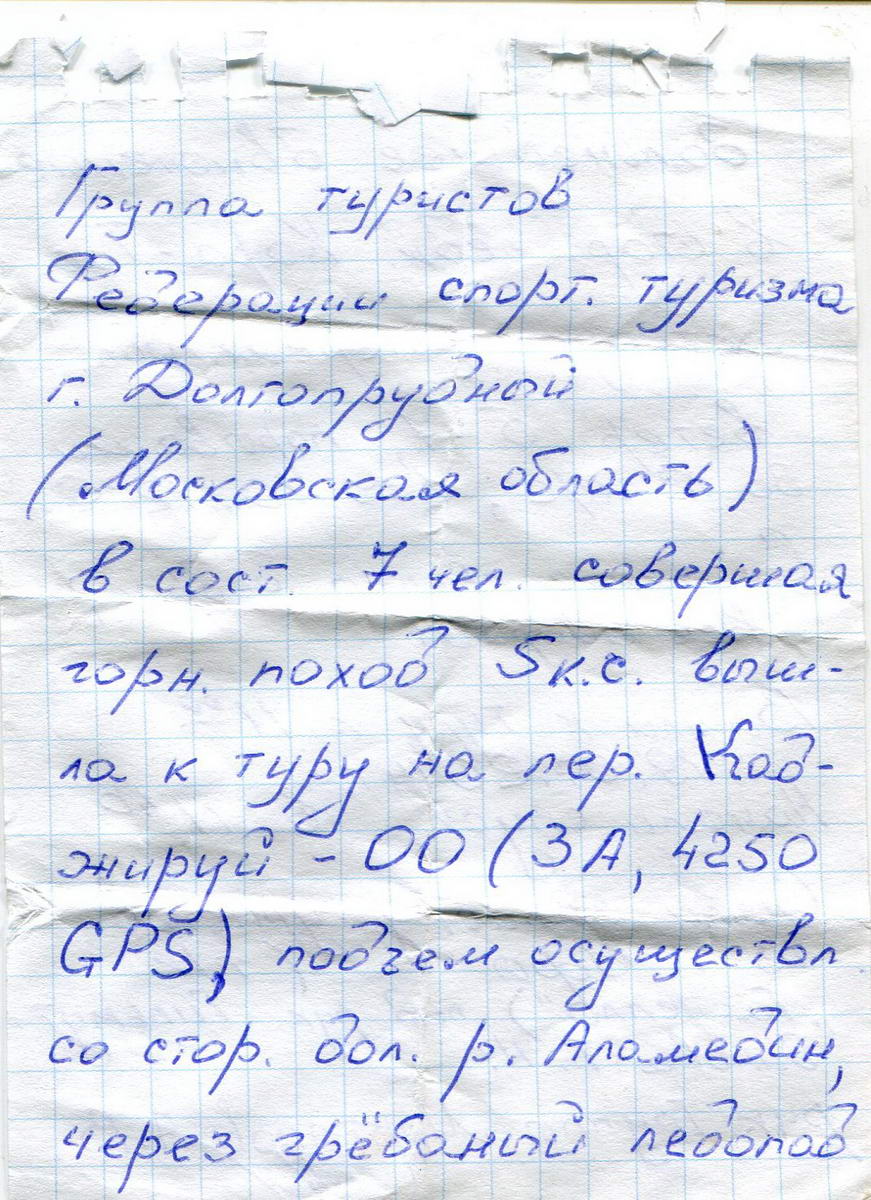 Группа туристов
Федерации спорт. туризма
г. Долгопрудный
(Московская область)
в сост. 7 чел. совершая
горн. поход 5к.с. выш-
ла к туру на пер. Кад-
жируй - ОО (3А, 4250
GPS), подъем осуществл.
со стор. дол. р. Аламедин,
через грёбаный ледопад